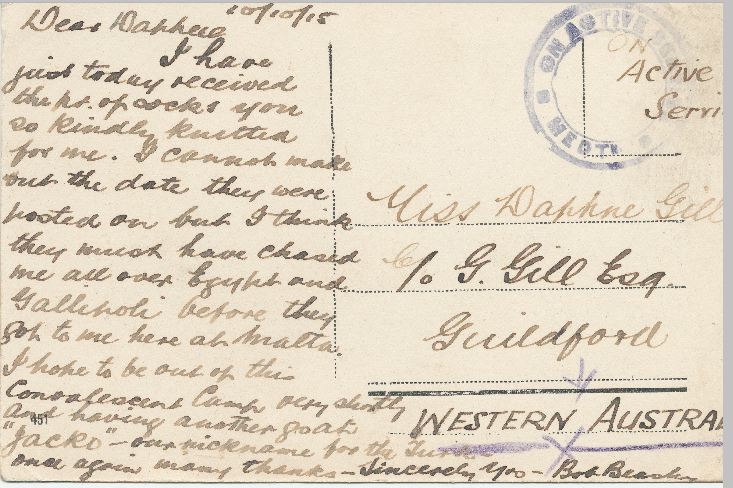 10/10/15
Dear Daphne
I have
just today received
the pr. of socks you
so kindly knitted
for me. I cannot make
out the date they were
posted on but I think
they must have chased
me all over Egypt and
Gallipoli before they
got to me here at Malta.
I hope to be out of this
Convalescent Camp very shortly
and having another go at
"Jacko" - our nickname for the Turk
once again many thanks - Sincerely Yrs - Bob
451
ON ACTIVE
ON
Active
Servi
Miss Daphne Gill
C/o G. Gill Esq.
Guildford
WESTERN AUSTRAL